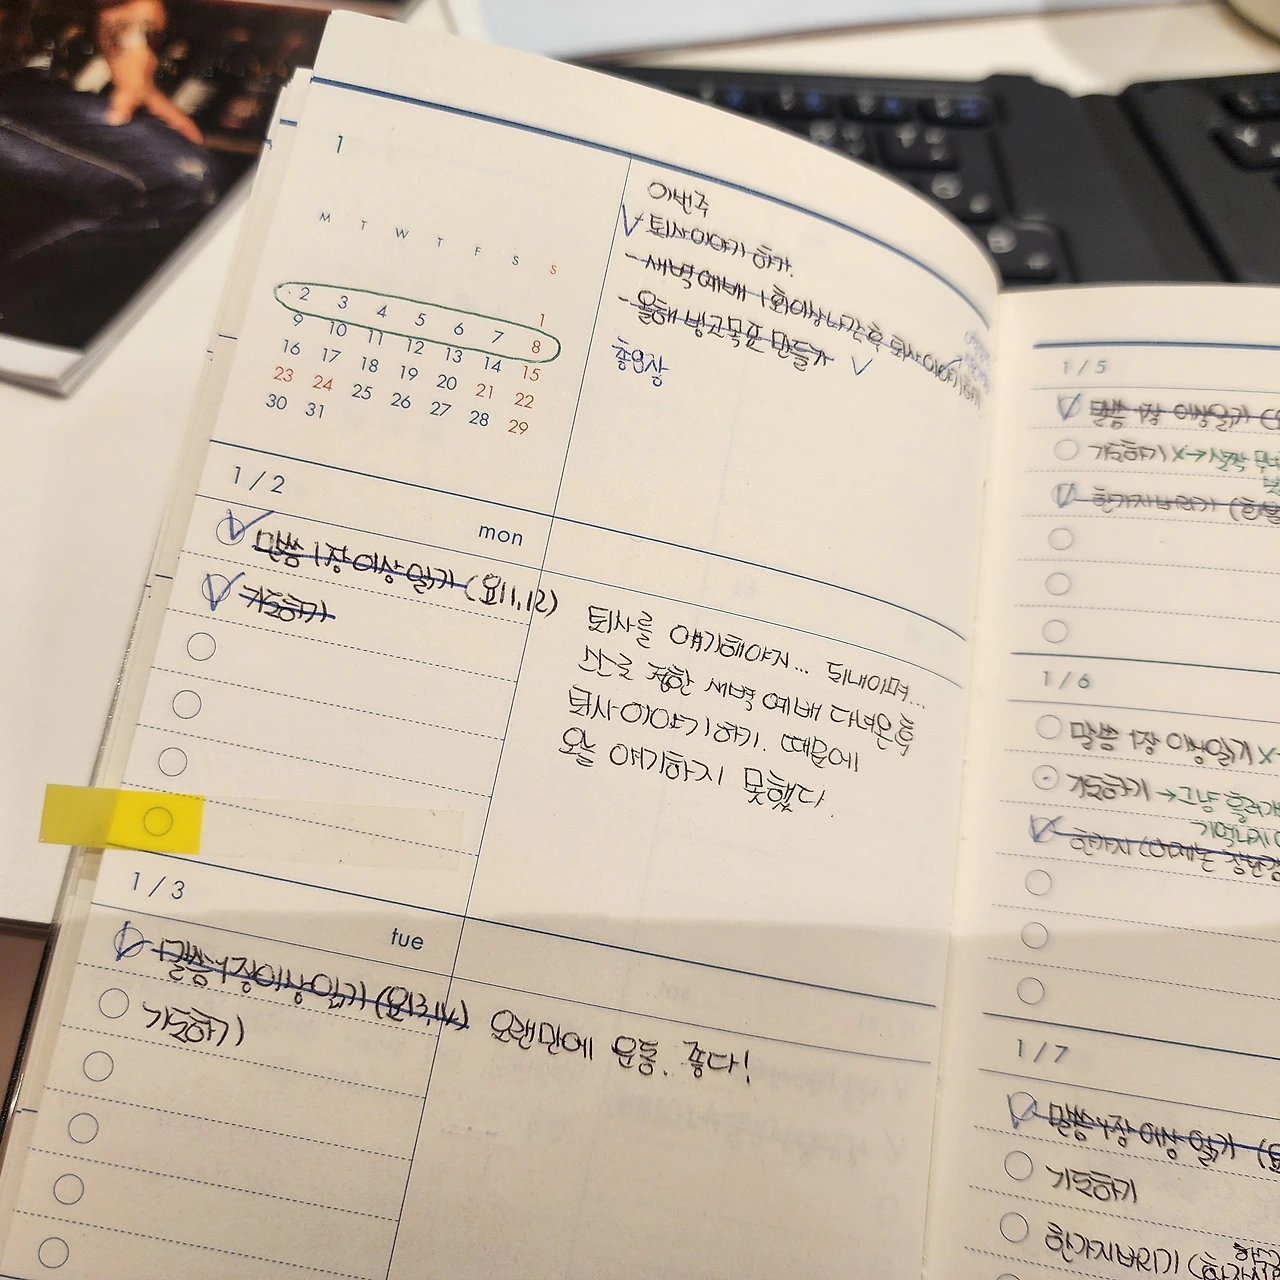 1
M T W T F S S
1
2 3 4 5 6 7 8
9 10 11 12 13 14 15
16 17 18 19 20 21 22
23 24 25 26 27 28 29
30 31
이번주
퇴사이야기 하기.
- 새벽예배 1회이상 나간 후 퇴사이야기하기
- 올해 빙고목표 만들기
1/2
mon
말씀 1장 이상 읽기 (요11,12)
기도하기
퇴사를 얘기해야지... 되내이며...
스스로 정한 새벽 예배 다녀온 후
퇴사이야기 하기. 때문에
오늘 얘기하지 못했다.
1/3
tue
말씀 1장이상 읽기 (요13,14)
기도하기
오랜만에 운동. 좋다!
1/5
말씀 1장 이상읽기
기도하기 X→살짝
한가지버리기
1/6
말씀 1장 이상읽기 X
기도하기 →그냥
한가지
1/7
말씀 1장 이상 읽기
기도하기
한가지버리기